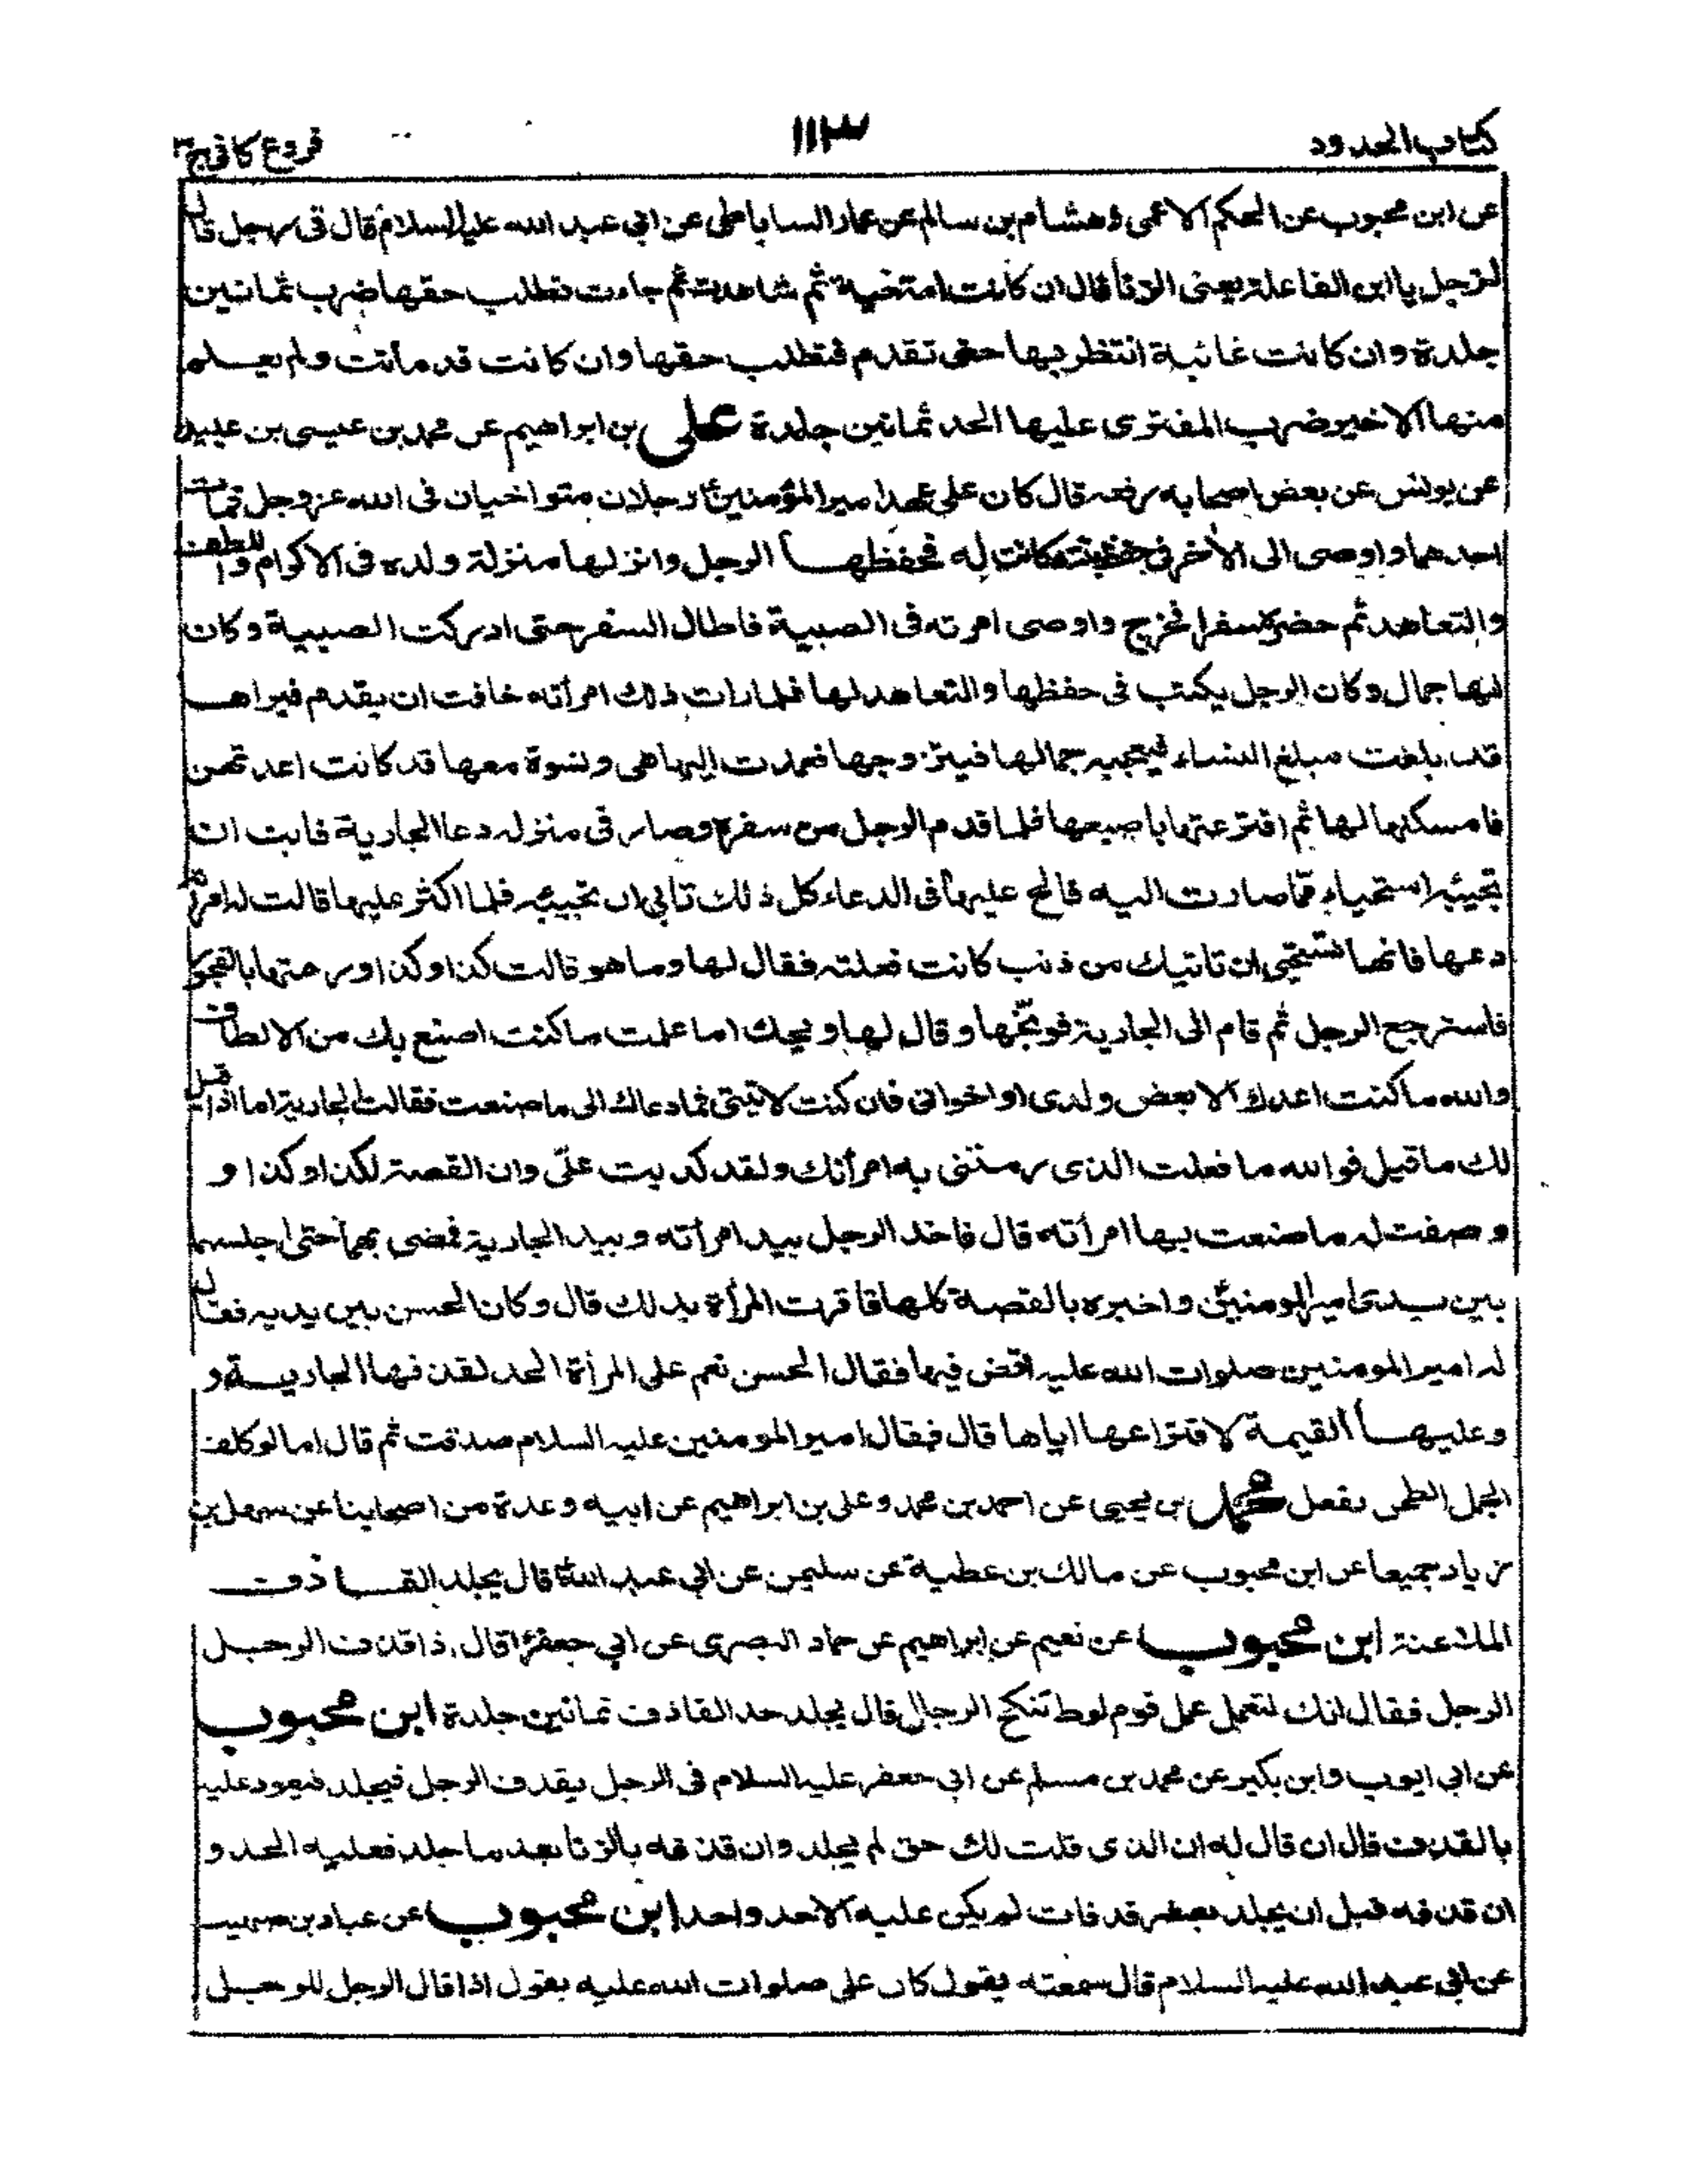 كتاب الحدود
١١٣
فروع كافي ج٣
عن ابن محبوب عن الحكم الاعمى وهشام بن سالم عن عمار الساباطى عن ابي عبد الله عليه السلام قال فى رجل قال
لرجل يا ابن الفاعلة يعنى الزنا قال ان كانت امه حية ثم شاهدة ثم جاءت تطلب حقها ضرب ثمانين
جلدة وان كانت غائبة انتظر بها حتى تقدم فتطلب حقها وان كانت قد ماتت ولم يعلم
منها الا خير ضرب المفترى عليها الحد ثمانين جلدة على بن ابراهيم عن محمد بن عيسى بن عبيد
عن يونس عن بعض اصحابه رفعه قال كان على عهد امير المؤمنين رجلان متواخيان فى الله عز وجل فمات
احدهما واوصى الى الأخر فى حفظ بنية كانت له فحفظها الرجل وانزلها منزلة ولده فى الاكرام واللطف
والتعاهد ثم حضره سفر فخرج واوصى امرته فى الصبية فاطال السفر حتى ادركت الصبية وكان
لها جمال وكان الرجل يكتب فى حفظها والتعاهد لها فلما رات ذلك امرأته خافت ان يقدم فيراها
قد بلغت مبلغ النساء فيعجبه جمالها فيتزوجها فعمدت اليها هى ونسوة معها قد كانت اعدتهن
فامسكنها لها ثم افترعتها باصبعها فلما قدم الرجل من سفره وصار فى منزله دعا الجارية فابت ان
تجيبه استحياء مما صارت اليه فالح عليها فى الدعاء كل ذلك تابى ان تجيبه فلما اكثر عليها قالت له امرأته
دعها فانها تستحيى ان تاتيك من ذنب كانت فعلته فقال لها وما هو قالت كذا وكذا ورمتها بالفجور
فاسترجع الرجل ثم قام الى الجارية فوبخها وقال لها ويحك اما علمت ما كنت اصنع بك من الالطاف
والله ما كنت اعدك الا بعض ولدى او اخوانى فان كنت لابنتى فما دعاك الى ما صنعت فقالت الجارية اما اذا قيل
لك ما قيل فوالله ما فعلت الذى رمتنى به امرأتك ولقد كذبت علىّ وان القصة لكذا وكذا و
وصفت له ما صنعت بها امرأته قال فاخذ الرجل بيد امرأته وبيد الجارية فمضى بهما حتى اجلسهما
بين يدى امير المومنين واخبره بالقصة كلها فاقرت المرأة بذلك قال وكان الحسن بين يديه فقال
له امير المومنين صلوات الله عليه اقض فيها فقال الحسن نعم على المرأة الحد لقذفها الجارية و
وعليها القيمة لافتراعها اياها قال فقال امير المومنين عليه السلام صدقت ثم قال اما لو كلف
الجمل الطحن لفعل محمد بن يحيى عن احمد بن محمد وعلى بن ابراهيم عن ابيه وعدة من اصحابنا عن سهل بن
زياد جميعا عن ابن محبوب عن مالك بن عطية عن سليمن عن ابي عبد الله قال يجلد القاذف
الملاعنة ابن محبوب عن نعيم عن ابراهيم عن حماد البصرى عن ابي جعفر قال اذا قذف الرجل
الرجل فقال انك لتعمل عمل قوم لوط تنكح الرجال قال يجلد حد القاذف ثمانين جلدة ابن محبوب
عن ابي ايوب وابن بكير عن محمد بن مسلم عن ابي جعفر عليه السلام فى الرجل يقذف الرجل فيجلد فيعود عليه
بالقذف قال ان قال له ان الذى قلت لك حق لم يجلد وان قذفه بالزنا بعد ما جلد فعليه الحد و
ان قذفه قبل ان يجلد بعشر قذفات لم يكن عليه الا حد واحد ابن محبوب عن عباد بن صهيب
عن ابى عبد الله عليه السلام قال سمعته يقول كان على صلوات الله عليه يقول اذا قال الرجل للرجل